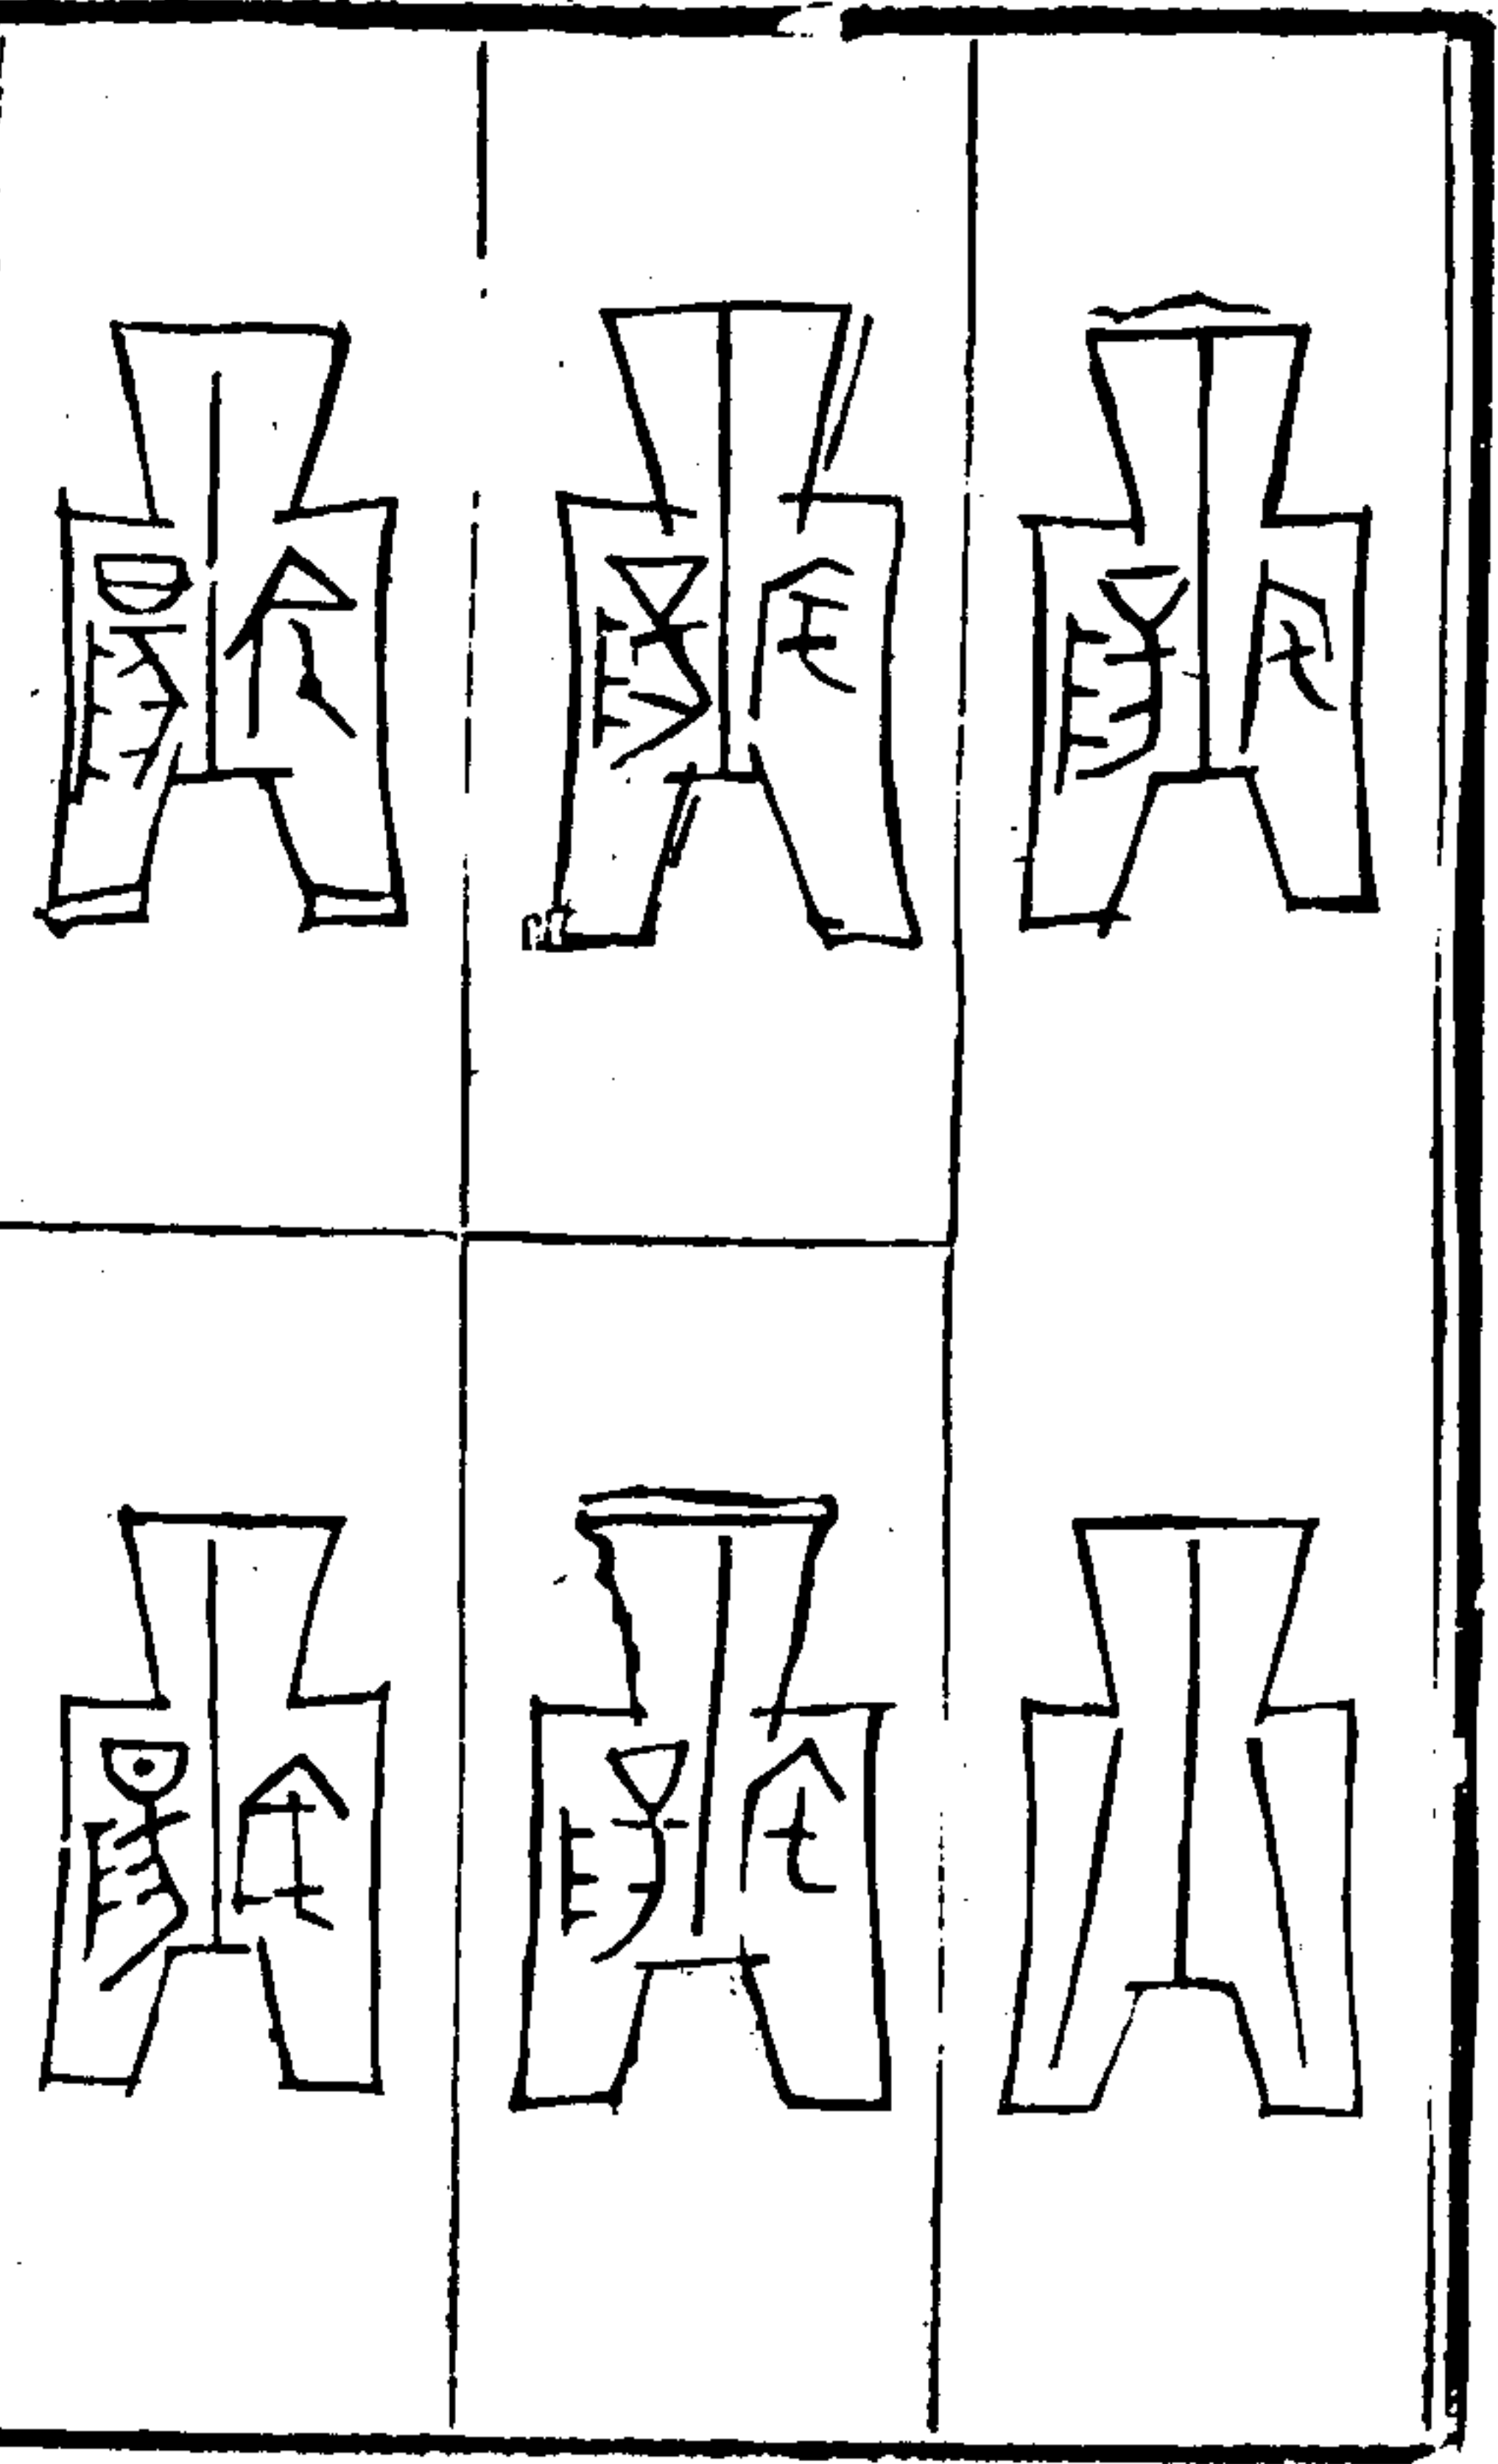 宅陽
宅陽
宅陽
宅陽
宅陽